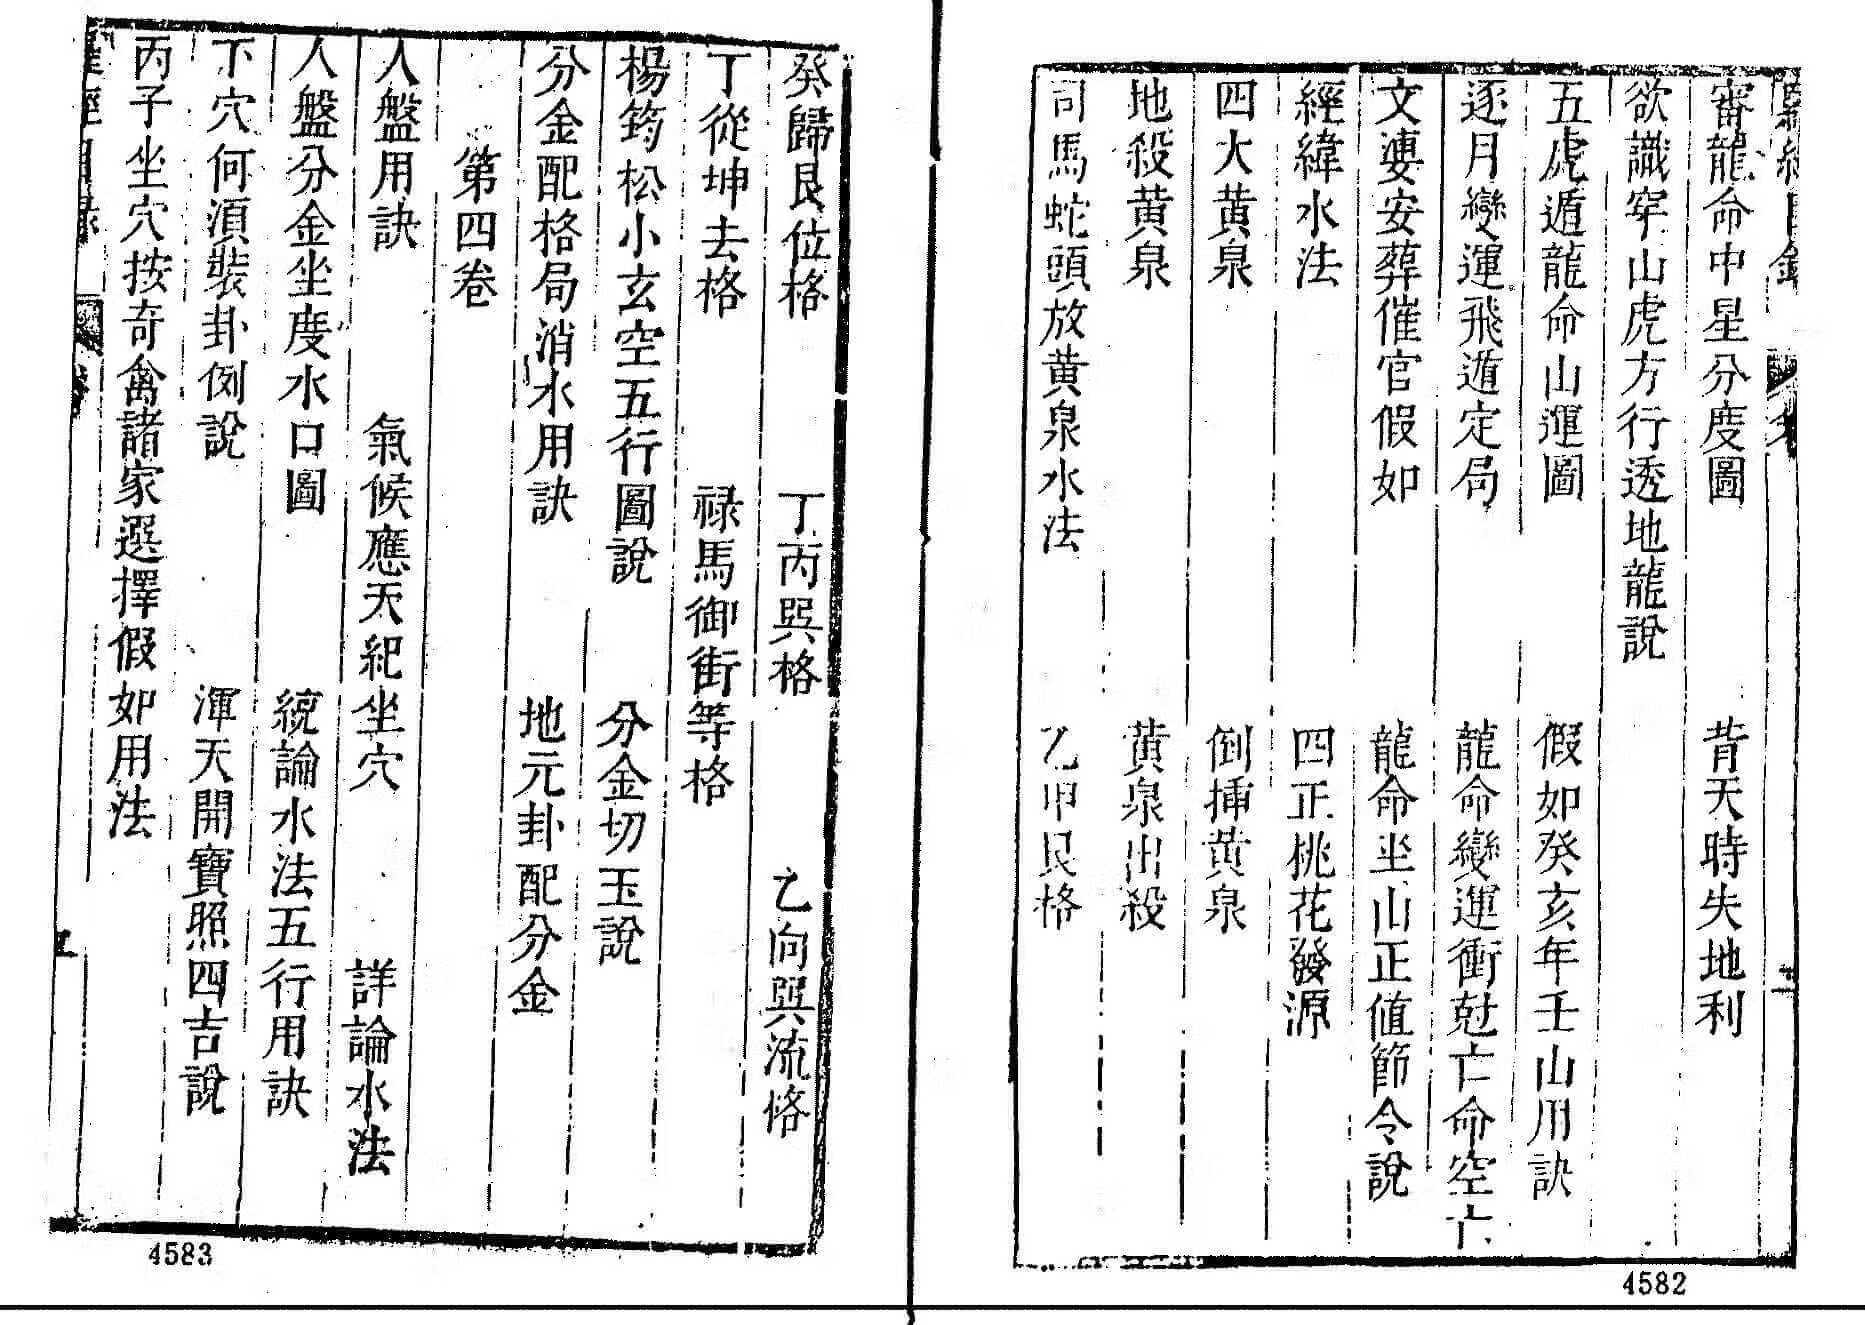 審龍命中星分度圖　背天時失地利
欲識穿山虎方行透地龍說
五虎遁龍命山運圖　假如癸亥年壬山用訣
逐月變運飛遁定局　龍命變運衝尅亡命空亡
文婁安葬催官假如　龍命坐山正值節令說
經緯水法　四正桃花發源
四大黃泉　倒挿黃泉
地殺黃泉　黃泉出殺
司馬蛇頭放黃泉水法　乙甲艮格
4582
癸歸艮位格　丁丙巽格　乙向巽流格
丁從坤去格　祿馬御街等格
楊筠松小玄空五行圖說　分金切玉說
分金配格局消水用訣　地元卦配分金
第四卷
人盤用訣　氣候應天紀坐穴　詳論水法
人盤分金坐度水口圖　統論水法五行用訣
下穴何須裝卦例說　渾天開寶照四吉說
丙子坐穴按奇禽諸家選擇假如用法
4583